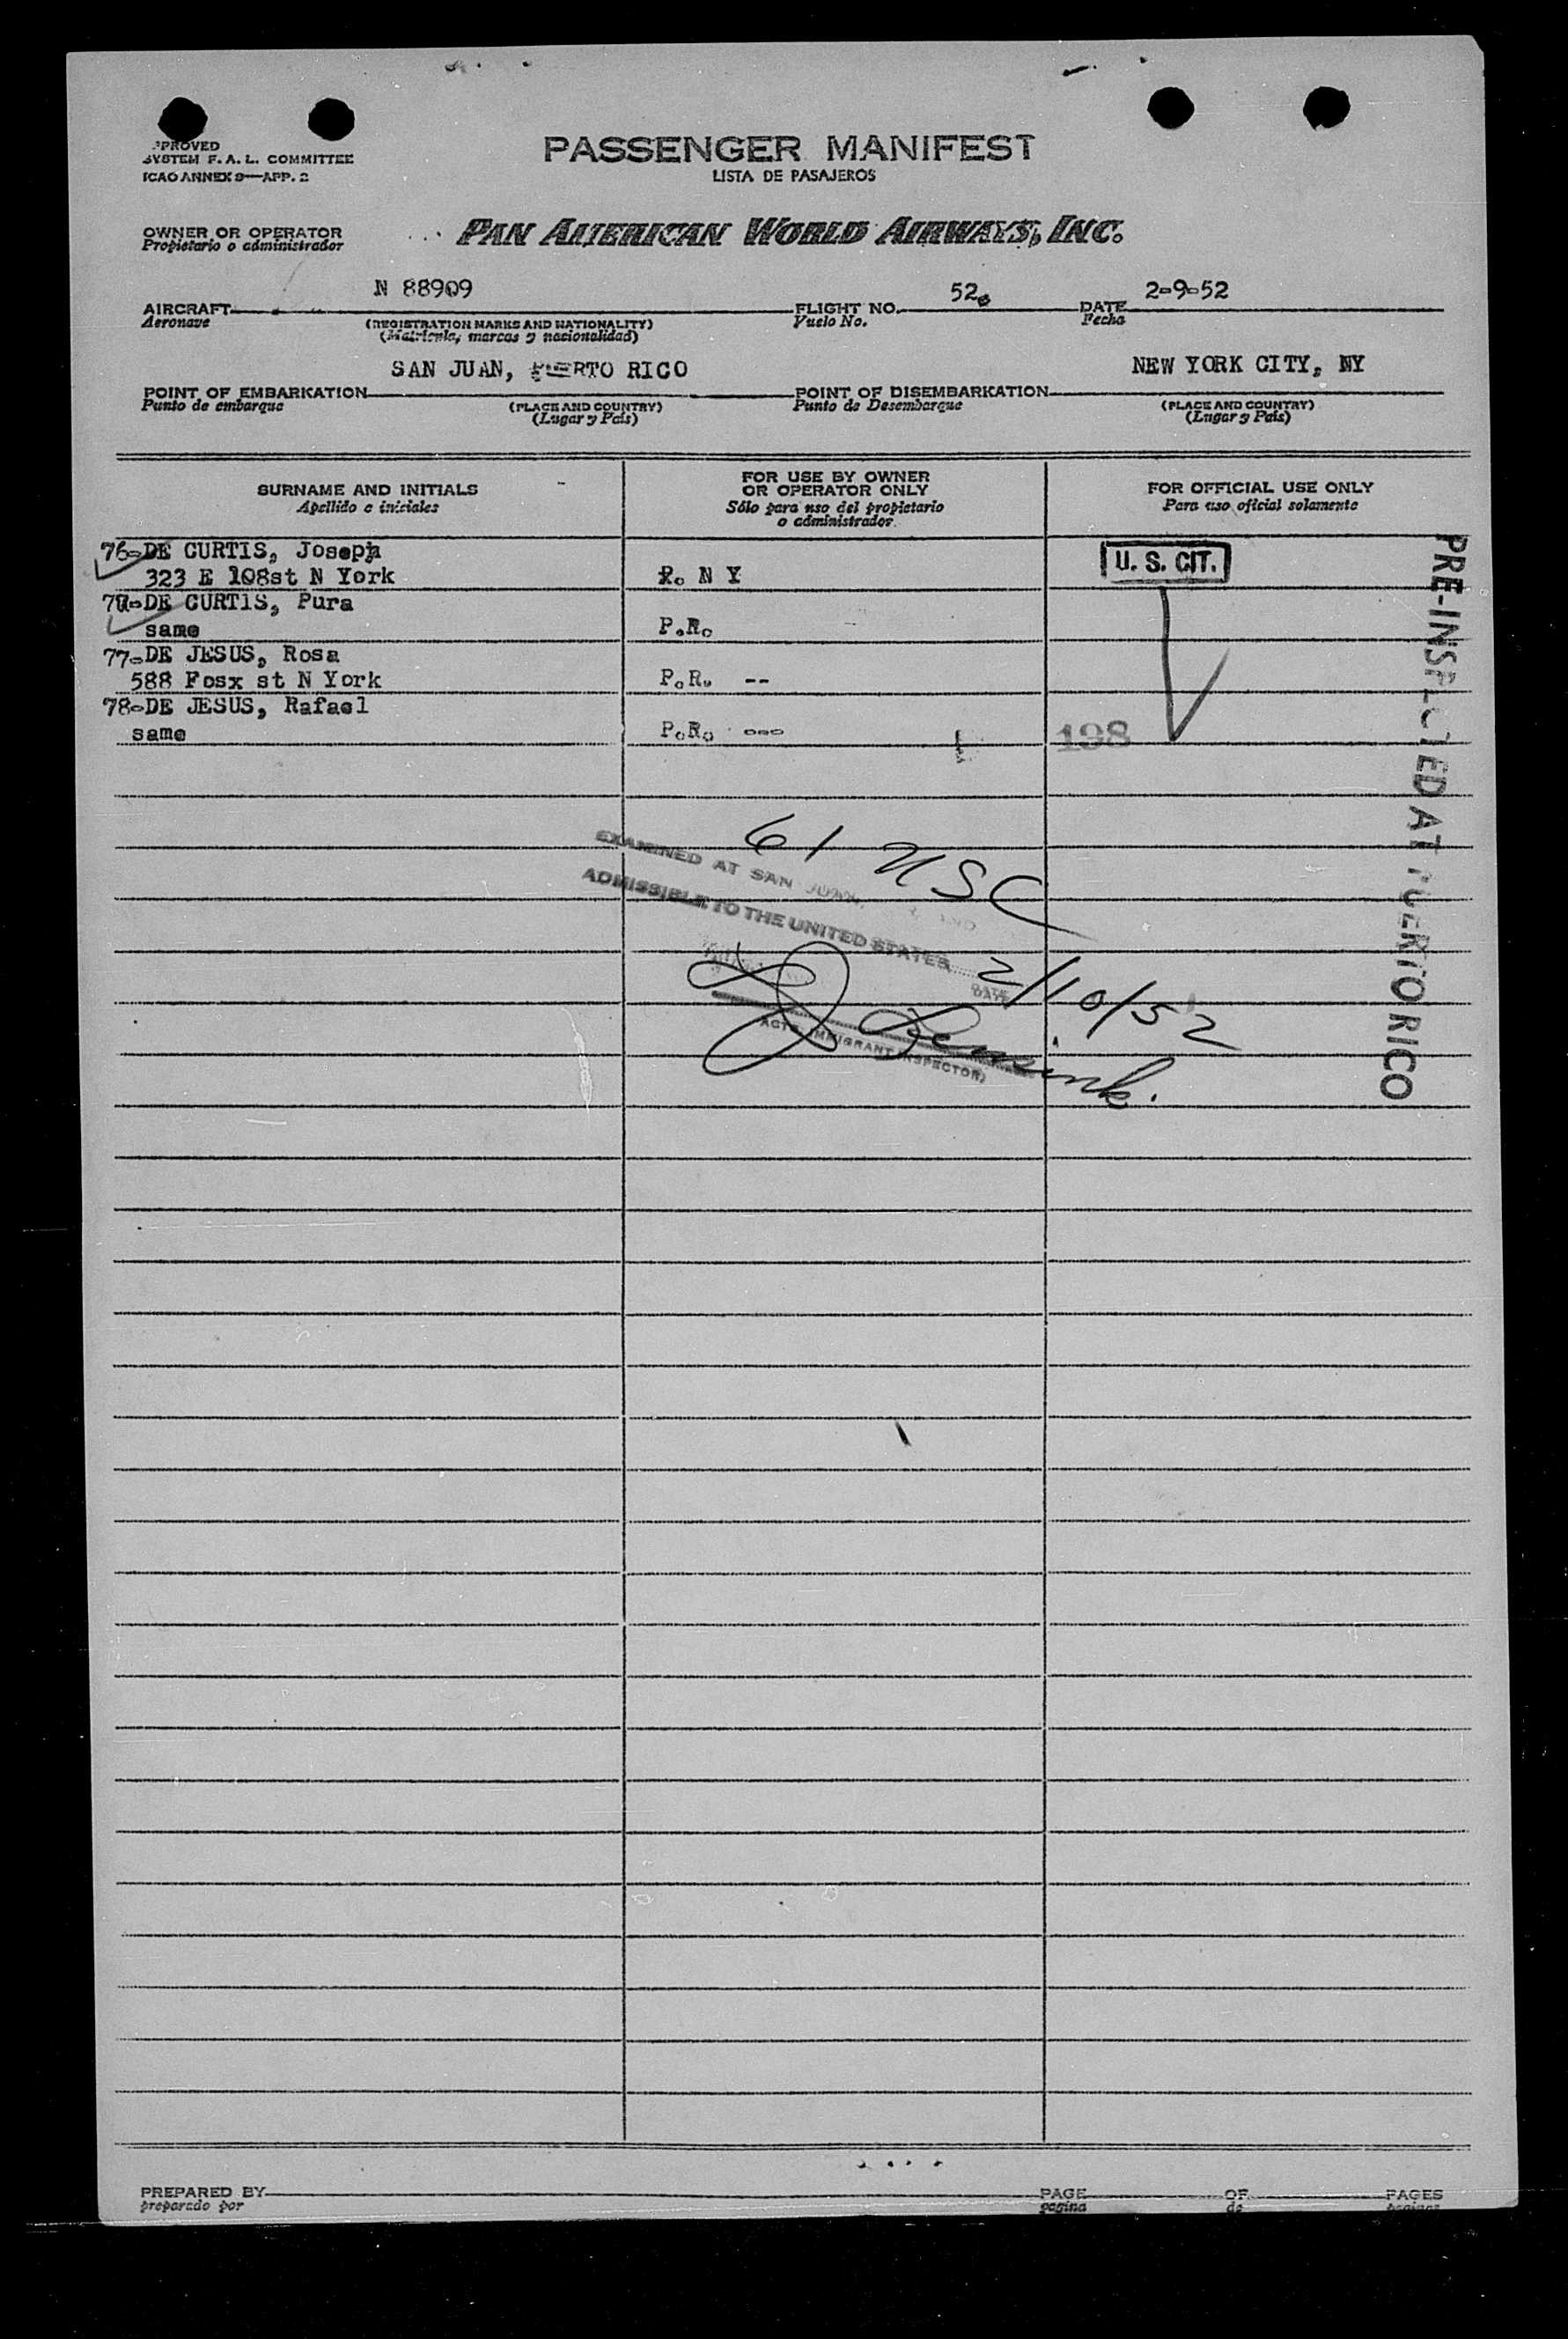 PASSENGER MANIFEST
LISTA DE PASAJEROS
SYSTEM F. A. L. COMMITTEE
ICAO ANNEX 9—APP. 2
OWNER OR OPERATOR
Propietario o administrador
PAN AMERICAN WORLD AIRWAYS, INC.
AIRCRAFT N 88909 FLIGHT NO. 52 DATE 2-9-52
Aeronave (REGISTRATION MARKS AND NATIONALITY) Vuelo No. Fecha
(Matrícula, marcas y nacionalidad)
POINT OF EMBARKATION SAN JUAN, PUERTO RICO POINT OF DISEMBARKATION NEW YORK CITY, NY
Punto de embarque (PLACE AND COUNTRY) Punto de Desembarque (PLACE AND COUNTRY)
(Lugar y País) (Lugar y País)
SURNAME AND INITIALS
Apellido e iniciales
FOR USE BY OWNER
OR OPERATOR ONLY
Sólo para uso del propietario
o administrador
FOR OFFICIAL USE ONLY
Para uso oficial solamente
76-DE CURTIS, Joseph
323 E 108st N York N Y
U. S. CIT.
DE CURTIS, Pura
same P.R.
77-DE JESUS, Rosa
588 Fosx st N York P.R. --
78-DE JESUS, Rafael
same P.R. ---
198
PRE-INSPECTED AT PUERTO RICO
61 USC
EXAMINED AT SAN JUAN,
ADMISSIBLE TO THE UNITED STATES
2/10/52
DATE
ACTG. IMMIGRANT INSPECTOR)
PREPARED BY PAGE OF PAGES
preparado por pagina de paginas